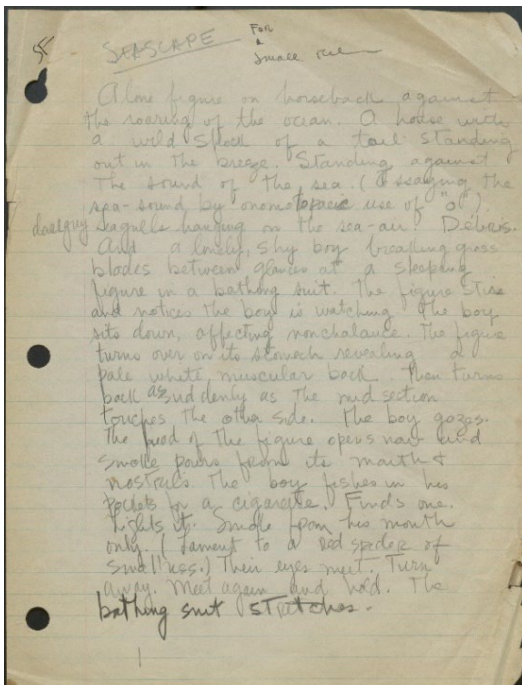 SEASCAPE
For
a
Small
A lone figure on horseback against
the roaring of the ocean. A house with
a wild shock of a tail standing
out in the breeze. Standing against
The sound of the sea. ( the
sea-sound by use of "o")
Seagulls hanging on the sea-air. Debris.
And a lonely, shy boy breaking grass
blades between glances at a sleeping
figure in a bathing suit. The figure stirs
and notices the boy is watching. The boy
sits down, affecting nonchalance. The figure
turns over on its stomach revealing a
pale white, muscular back. Then turns
back as suddenly as the mid section
touches the other side. The boy gazes.
The of the figure opens now and
smoke pours from its mouth &
nostrils. The boy fishes in his
pockets for a cigarette. Finds one.
Lights it. Smoke from his mouth
only. (Lament to a red spider of
smallness.) Their eyes meet. Turn
away. Meet again and hold. The
bathing suit stretches.
1